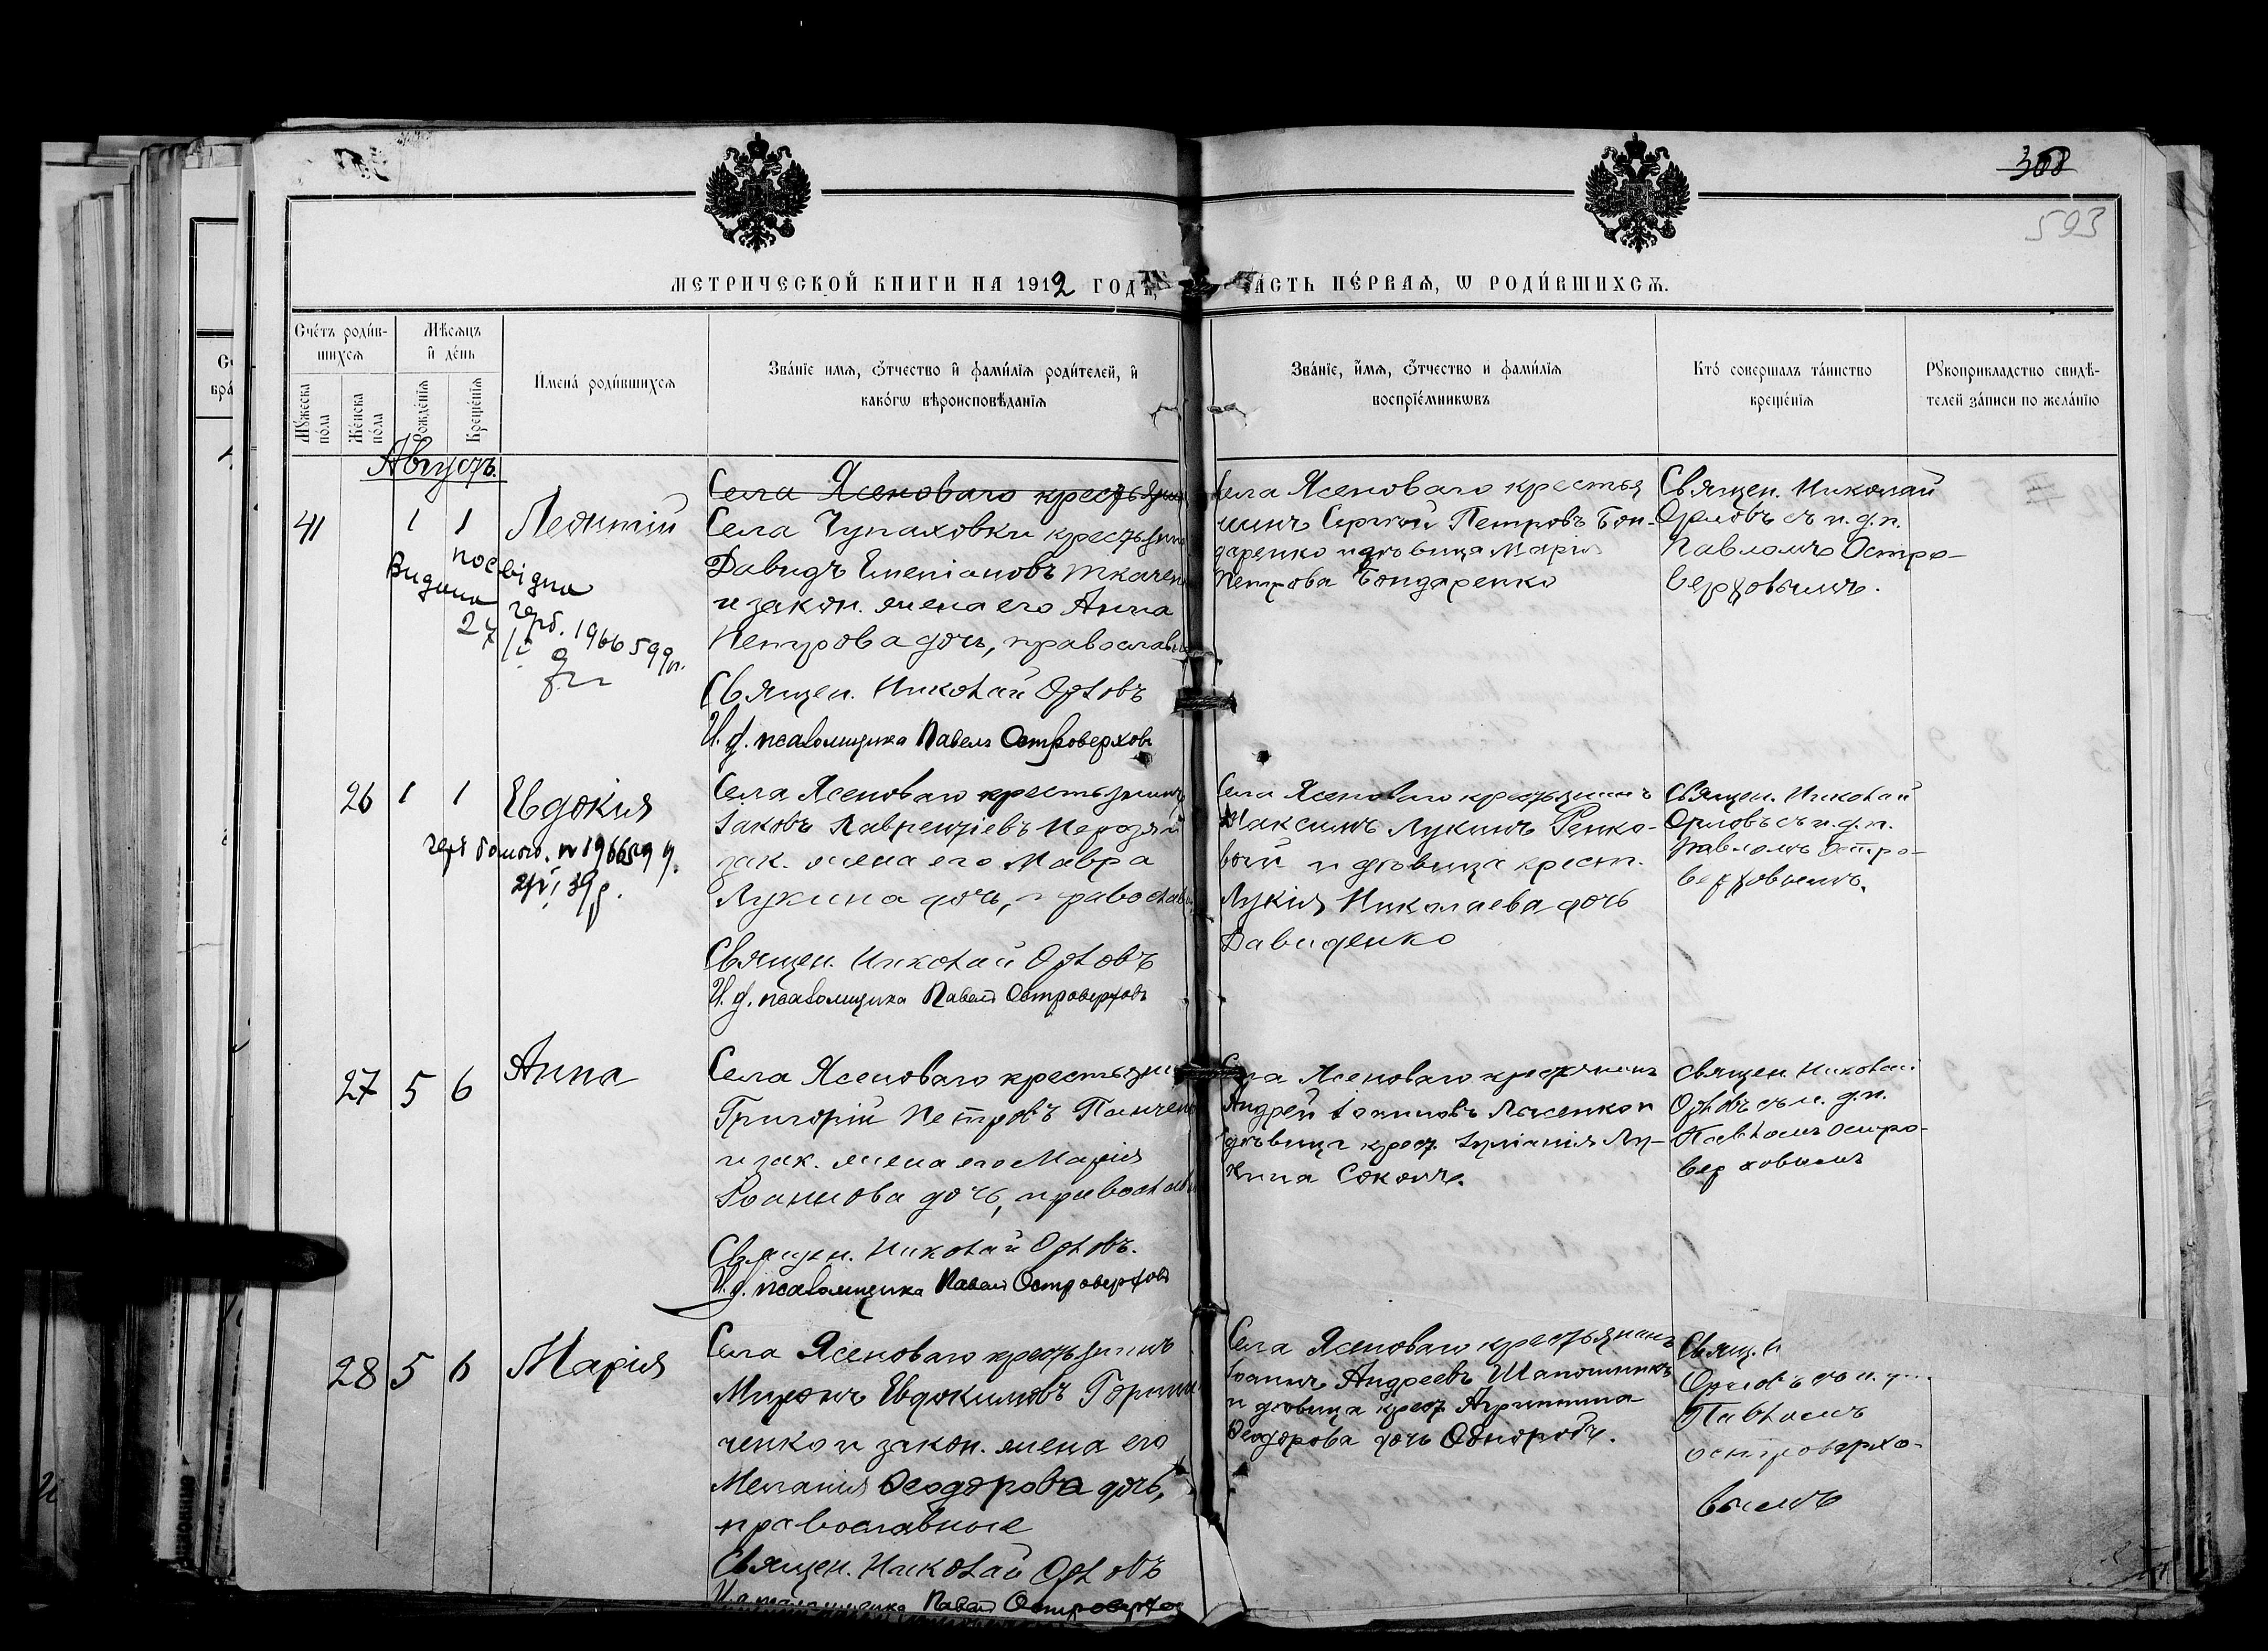 308
593
МЕТРИЧЕСКОЙ КНИГИ НА 1912 ГОДЪ,
ЧАСТЬ ПЕ́РВАѦ, Ѡ РОДИ́ВШИХСѦ.
Сче́тъ роди́в-
шихсѧ
Мꙋ́жеска по́ла
Же́нска по́ла
Мѣ́сѧцъ
и҆ де́нь
Рожде́нїѧ
Креще́нїѧ
И҆мена̀ роди́вшихсѧ
Зва́нїе имѧ, ѻ҆́тчество и҆ фами́лїѧ роди́телей, и҆
како́гѡ вѣроисповѣ́данїѧ
Зва́нїе, и҆́мѧ, ѻ҆́тчество и фами́лїѧ
воспрїе́мникѡвъ
Кто́ совершалъ та́инство
креще́нїѧ
Рꙋкоприкладство свидѣ́-
телей за́писи по жела́нїю
Августъ.
41
1
1
Леонтій
Видана посвідка
герб. 196659 9
27
Села Ясеноваго крестьянин
Села Чупаховки крестьянин
Давидъ Емеліановъ Ткачен
и закон. жена его Анна
Петрова дочь, православн
Священ. Николай Орловъ
И. д. псаломщика Павелъ Островерховъ
Села Ясеноваго крестья
нинъ Сергѣй Петровъ Бон-
даренко и дѣвица Марія
Петрова Бондаренко
Священ. Николай
Орловъ съ и. д. п.
Павломъ Остро-
верховымъ.
26
1
1
Евдокія
№ 196659 9
39 р.
Села Ясеноваго крестьянинъ
Іаковъ Лаврентіевъ
зак. жена его Мавра
Лукина дочь, православн
Священ. Николай Орловъ
И. д. псаломщика Павелъ Островерховъ
Села Ясеноваго крестьянинъ
Максимъ Лукинъ Репко-
вый и дѣвица крест.
Лукія Николаева дочь
Давиденко
Священ. Николай
Орловъ съ и. д. п.
Павломъ Остро-
верховымъ.
27
5
6
Анна
Села Ясеноваго крестьянин
Григорій Петровъ Панчен
и зак. жена его Марія
Іоаннова дочь, православн
Священ. Николай Орловъ.
И. д. псаломщика Павелъ Островерховъ
Села Ясеноваго крестьянинъ
Андрей Іоанновъ Лысенко и
дѣвица крест. Іуліанія Лу-
кина Соколъ.
Священ. Николай
Орловъ съ и. д. п.
Павломъ Остро-
верховымъ
28
5
6
Марія
Села Ясеноваго крестьянинъ
Миронъ Евдокимовъ
ченко и закон. жена его
Меланія Ѳеодорова дочь,
православные
Священ. Николай Орловъ
И. д. псаломщика Павелъ Островерхов
Села Ясеноваго крестьянинъ
Іоаннъ Андреевъ Шапошникъ
и дѣвица крест. Агриппина
Ѳеодорова дочь
Свящ. Н
Орловъ съ и. д.
Павломъ
Островерхо-
вымъ